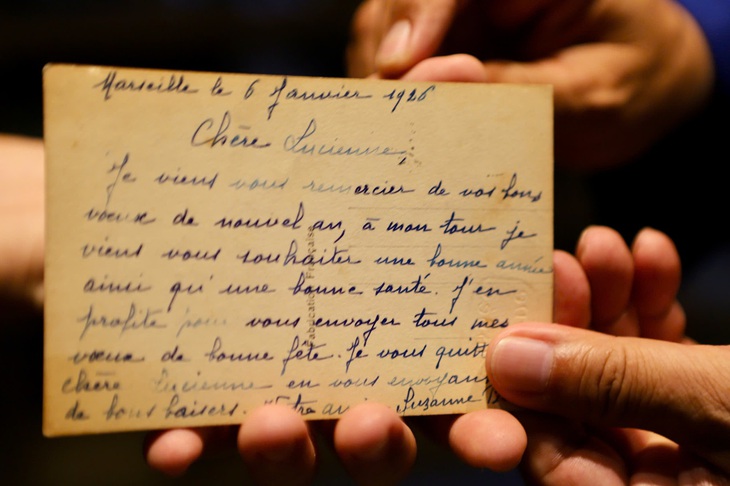 Marseille le 6 Janvier 1926
Chère Lucienne,
Je viens vous remercier de vos bons
vœux de nouvel an, à mon tour je
viens vous souhaiter une bonne année
ainsi qu'une bonne santé. J'en
profite pour vous envoyer tous mes
vœux de bonne fête. Je vous quitt
chère Lucienne en vous envoyant
de bons baisers. Votre Suzanne
Fabrication Française